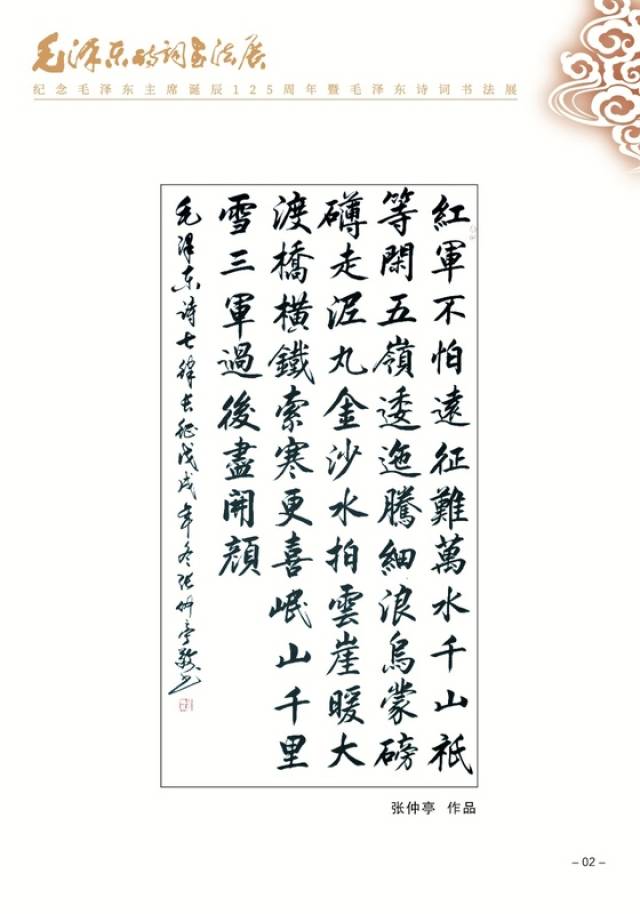 毛泽东诗词书法展
纪念毛泽东主席诞辰125周年暨毛泽东诗词书法展
紅軍不怕遠征難萬水千山祇
等閑五嶺逶迤騰細浪烏蒙磅
礴走泥丸金沙水拍雲崖暖大
渡橋橫鐵索寒更喜岷山千里
雪三軍過後盡開顔
毛泽东诗七律长征戊戌年冬张仲亭敬书
张仲亭 作品
– 02 –